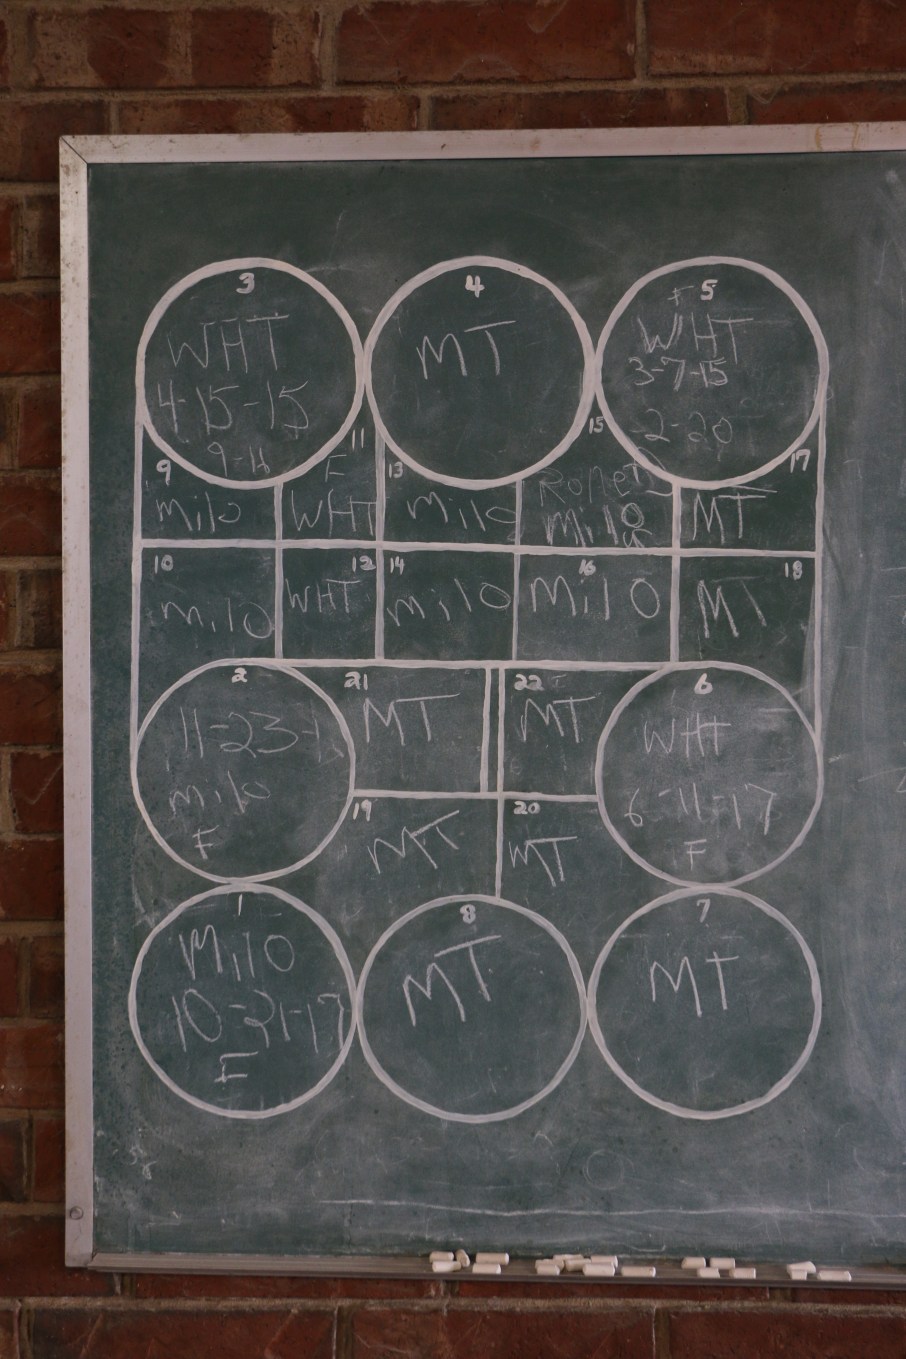 3
WHT
4-15-15
9-16
4
MT
F 5
WHT
3-7-15
2-20
9
Milo
11
F
WHT
13
Milo
15
Milo
17
MT
10
Milo
12
WHT
14
Milo
16
Milo
18
MT
2
11-23-1
Milo
F
21
MT
22
MT
6
WHT
6-11-17
F
19
MT
20
MT
1
Milo
10-31-17
F
8
MT
7
MT